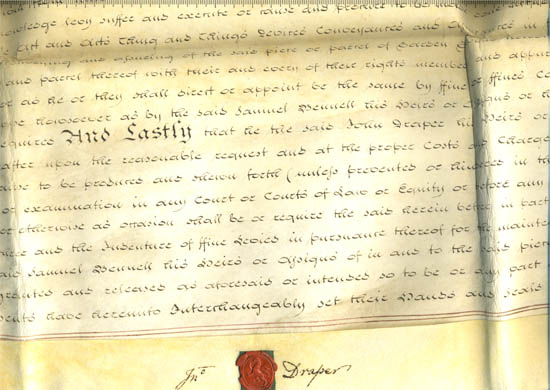 nowledge levy suffer and execute or cause and procure to be made
Act and Acts Thing and Things Devices Conveyances and Assurances in
and assuring of the said piece or parcel of Garden
and parcel thereof with their and every of their rights members and appur
or as he or they shall direct or appoint be the same by ffine or ffines Co
ver howsoever as by the said Samuel Bennell his Heirs or Assigns or th
equired And Lastly that he the said John Draper his Heirs or
after upon the reasonable request and at the proper Costs and Charges
ause to be produced and shewn forth (unless prevented or hindered in th
or examination in any Court or Courts of Law or Equity or before any
or otherwise as occasion shall be or require the said herein before in part
ture and the Indenture of ffine levied in pursuance thereof for the mainte
aid Samuel Bennell his Heirs or Assigns of in and to the said piece
granted and released as aforesaid or intended so to be or any part
sents have hereunto Interchangeably set their Hands and Seals
Jno Draper